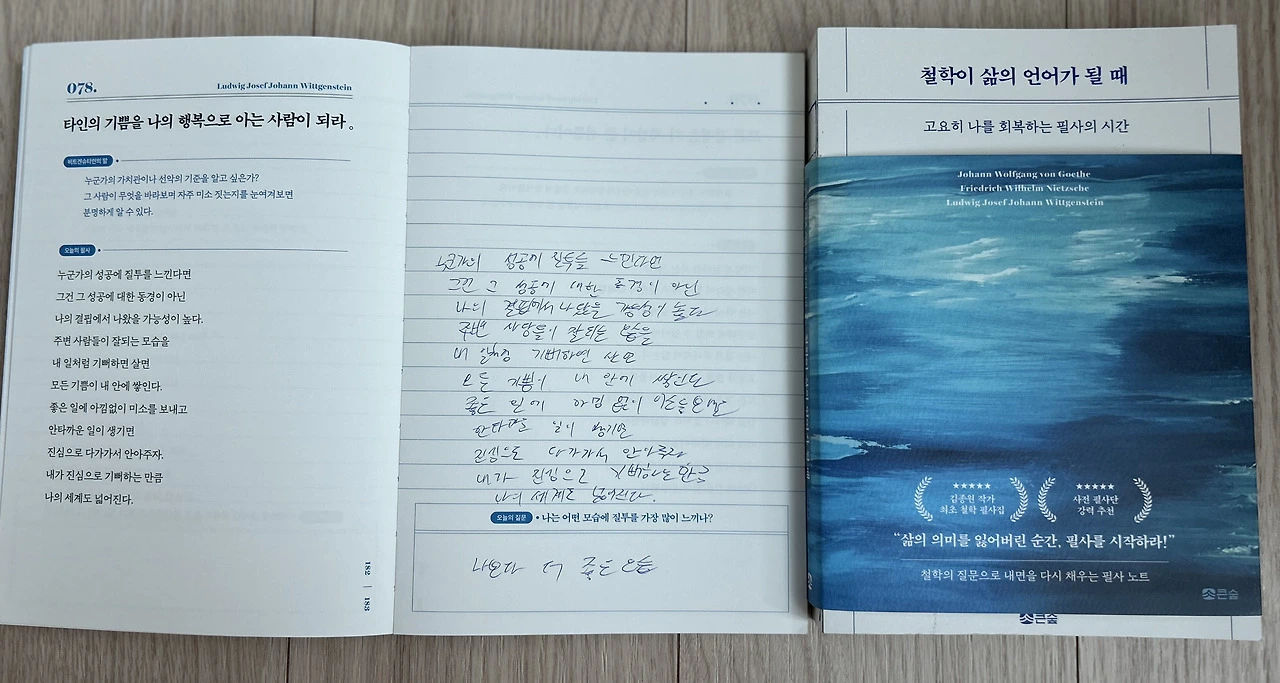 078.
Ludwig Josef Johann Wittgenstein
타인의 기쁨을 나의 행복으로 아는 사람이 되라.
비트겐슈타인의 말
누군가의 가치관이나 선악의 기준을 알고 싶은가?
그 사람이 무엇을 바라보며 자주 미소 짓는지를 눈여겨보면
분명하게 알 수 있다.
오늘의 필사
누군가의 성공에 질투를 느낀다면
그건 그 성공에 대한 동경이 아닌
나의 결핍에서 나왔을 가능성이 높다.
주변 사람들이 잘되는 모습을
내 일처럼 기뻐하면 살면
모든 기쁨이 내 안에 쌓인다.
좋은 일에 아낌없이 미소를 보내고
안타까운 일이 생기면
진심으로 다가가서 안아주자.
내가 진심으로 기뻐하는 만큼
나의 세계도 넓어진다.
182
183
성공에 질투를 느낀다면
그건 그 성공에 대한 동경이 아닌
나의 결핍에서 높다
주변 사람들이 잘되는
내 기뻐하면 살면
모든 기쁨이 내 안에 쌓인다
좋은 일에
일이 생기면
진심으로 다가가서
내가 진심으로 기뻐하는 만큼
나의 세계도 넓어진다.
오늘의 질문
• 나는 어떤 모습에 질투를 가장 많이 느끼나?
나보다 더 좋은 모습
철학이 삶의 언어가 될 때
고요히 나를 회복하는 필사의 시간
Johann Wolfgang von Goethe
Friedrich Wilhelm Nietzsche
Ludwig Josef Johann Wittgenstein
★★★★★
김종원 작가
최초 철학 필사집
★★★★★
사전 필사단
강력 추천
“삶의 의미를 잃어버린 순간, 필사를 시작하라!”
철학의 질문으로 내면을 다시 채우는 필사 노트
큰숲
큰숲